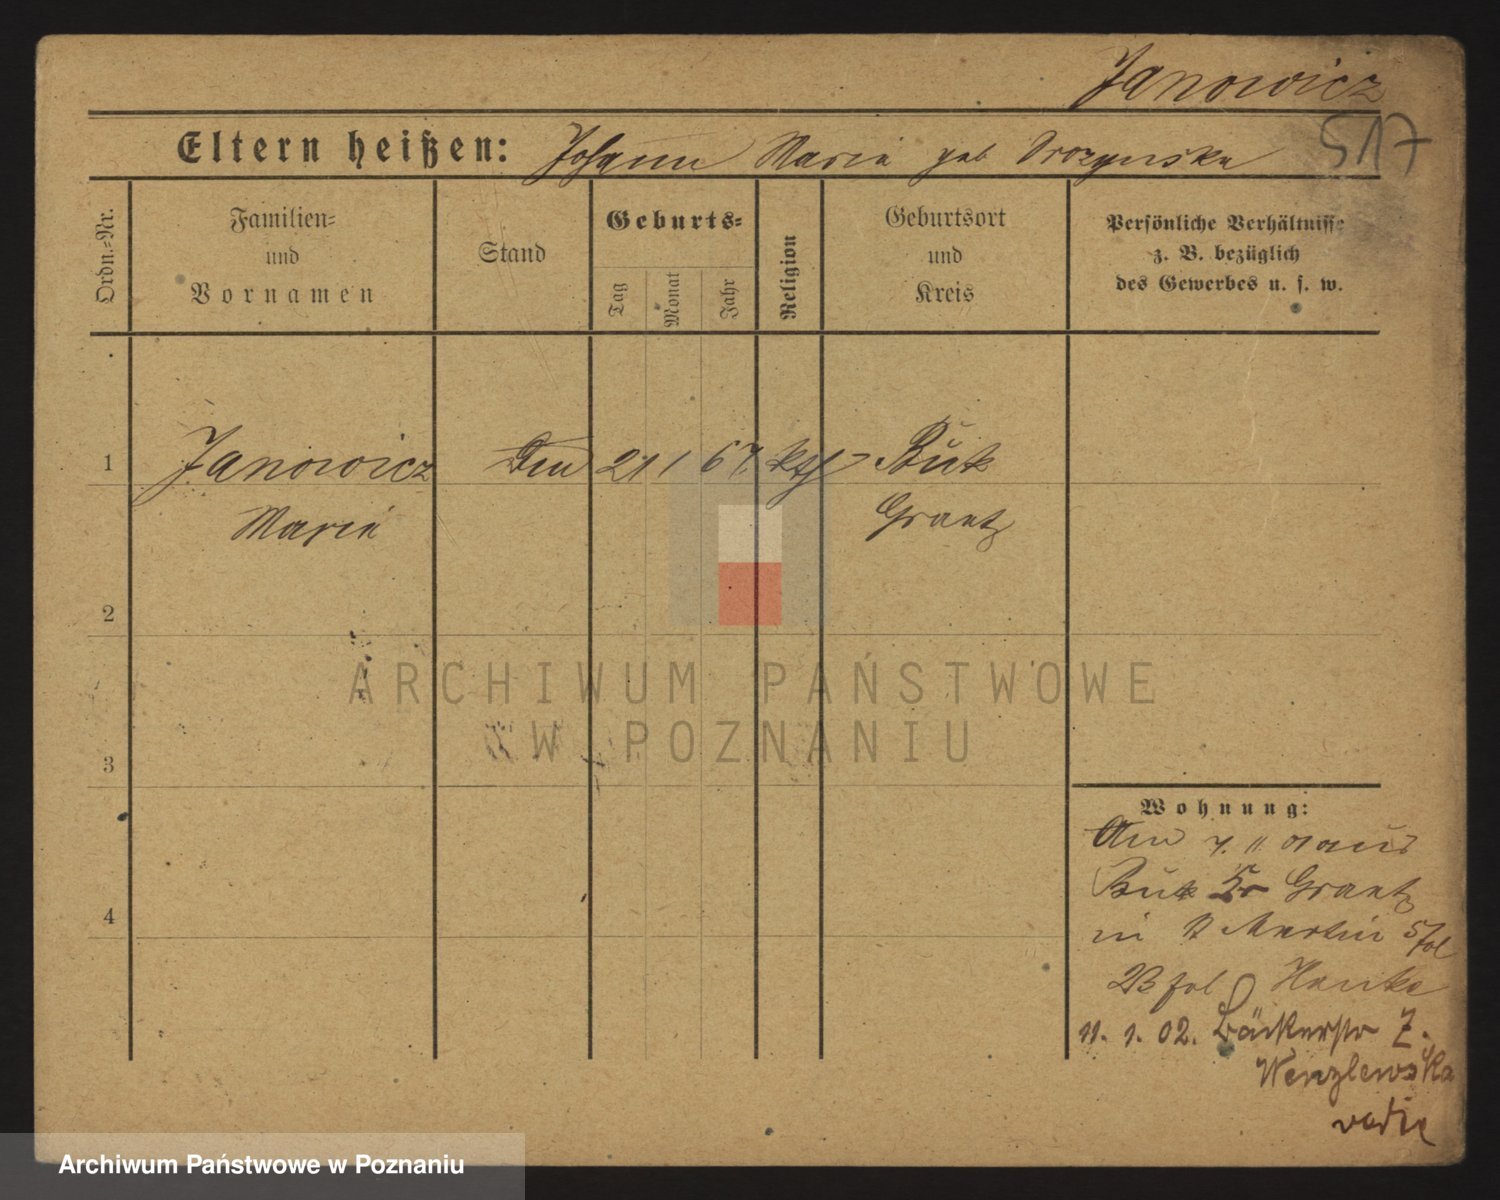 Janowicz
517
Eltern heißen: Johann Maria geb Drozynska
Ordn.=Nr.
Familien=
und
Vornamen
Stand
Geburts=
Tag
Monat
Jahr
Religion
Geburtsort
und
Kreis
Persönliche Verhältnisse
z. B. bezüglich
des Gewerbes u. s. w.
1 Janowicz 21 1 67 kth Buk
Maria Graetz
2
3
4
Wohnung:
aus
Buk Kr Graetz
in St Martin 5
bei Hanke
11. 1. 02. Bäckerstr 7.
Wenzlewska
ARCHIWUM PAŃSTWOWE
W POZNANIU
Archiwum Państwowe w Poznaniu